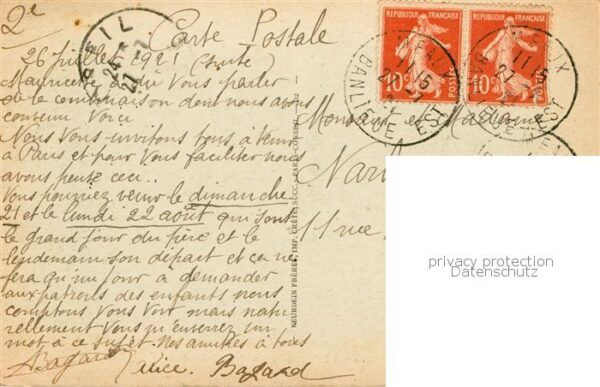 2e
Carte Postale
26 juillet 1921 (suite)
Mauricette a dû vous parler
de la combinaison dont nous avons
convenu Voici
Nous vous invitons tous à venir
à Paris et pour vous faciliter nous
avons pensé ceci..
Vous pourriez venir le dimanche
21 et le lundi 22 août qui sont
le grand jour du père et le
lendemain son départ et ca ne
fera qu'un jour à demander
aux patrons des enfants nous
comptons vous voir mais natu
rellement vous n'enverrez un
mot à ce sujet. Nos amitiés à tous
Bagard Alice. Bagard
NEURDEIN FRÈRES, IMP. CRÉTÉ, SUCC. PARIS-CORBEIL
Monsieur et Madame
11 rue
REPUBLIQUE FRANÇAISE
10c
POSTES
REPUBLIQUE FRANÇAISE
10c
POSTES
BANLIEUE OUEST
privacy protection
Datenschutz